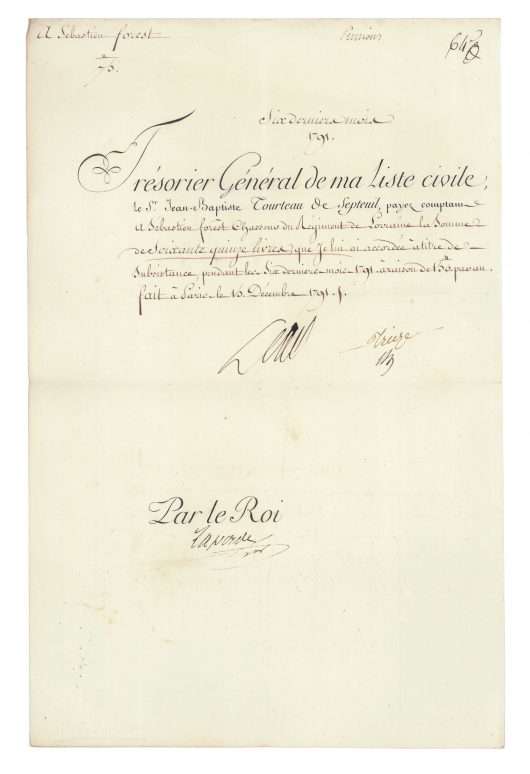 A Sébastien forest
Pensions
647
75.
Six derniers mois
1791.
Trésorier Général de ma Liste civile,
le Sr. Jean-Baptiste Tourteau de Septeuil, payez comptant
A Sébastien forest Chasseur du Régiment de Lorraine la Somme
de Soixante quinze livres, que Je lui ai accordée à titre de
Subsistance, pendant les Six derniers mois 1791. à raison de 150tt par an.
fait à Paris, le 15. Décembre 1791./.
Louis
Par le Roi
Laporte